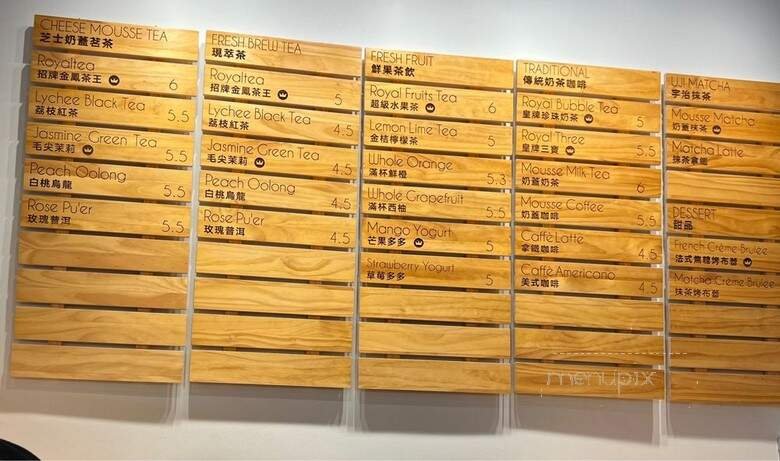 CHEESE MOUSSE TEA
芝士奶蓋茗茶
Royaltea
招牌金鳳茶王 6
Lychee Black Tea
荔枝紅茶 5.5
Jasmine Green Tea
毛尖茉莉 5.5
Peach Oolong
白桃烏龍 5.5
Rose Pu'er
玫瑰普洱 5.5
FRESH BREW TEA
現萃茶
Royaltea
招牌金鳳茶王 5
Lychee Black Tea
荔枝紅茶 4.5
Jasmine Green Tea
毛尖茉莉 4.5
Peach Oolong
白桃烏龍 4.5
Rose Pu'er
玫瑰普洱 4.5
FRESH FRUIT
鮮果茶飲
Royal Fruits Tea
超級水果茶 6
Lemon Lime Tea
金桔檸檬茶 5
Whole Orange
滿杯鮮橙 5.3
Whole Grapefruit
滿杯西柚 5.5
Mango Yogurt
芒果多多 5
Strawberry Yogurt
草莓多多 5
TRADITIONAL
傳統奶茶咖啡
Royal Bubble Tea
皇牌珍珠奶茶 5
Royal Three
皇牌三寶 5.5
Mousse Milk Tea
奶蓋奶茶 6
Mousse Coffee
奶蓋咖啡 5.5
Caffè Latte
拿鐵咖啡 4.5
Caffè Americano
美式咖啡 4.5
UJI MATCHA
宇治抹茶
Mousse Matcha
奶蓋抹茶
Matcha Latte
抹茶拿鐵
DESSERT
甜品
French Crème Brulée
法式焦糖烤布蕾
Matcha Crème Brulée
抹茶烤布蕾
menupix